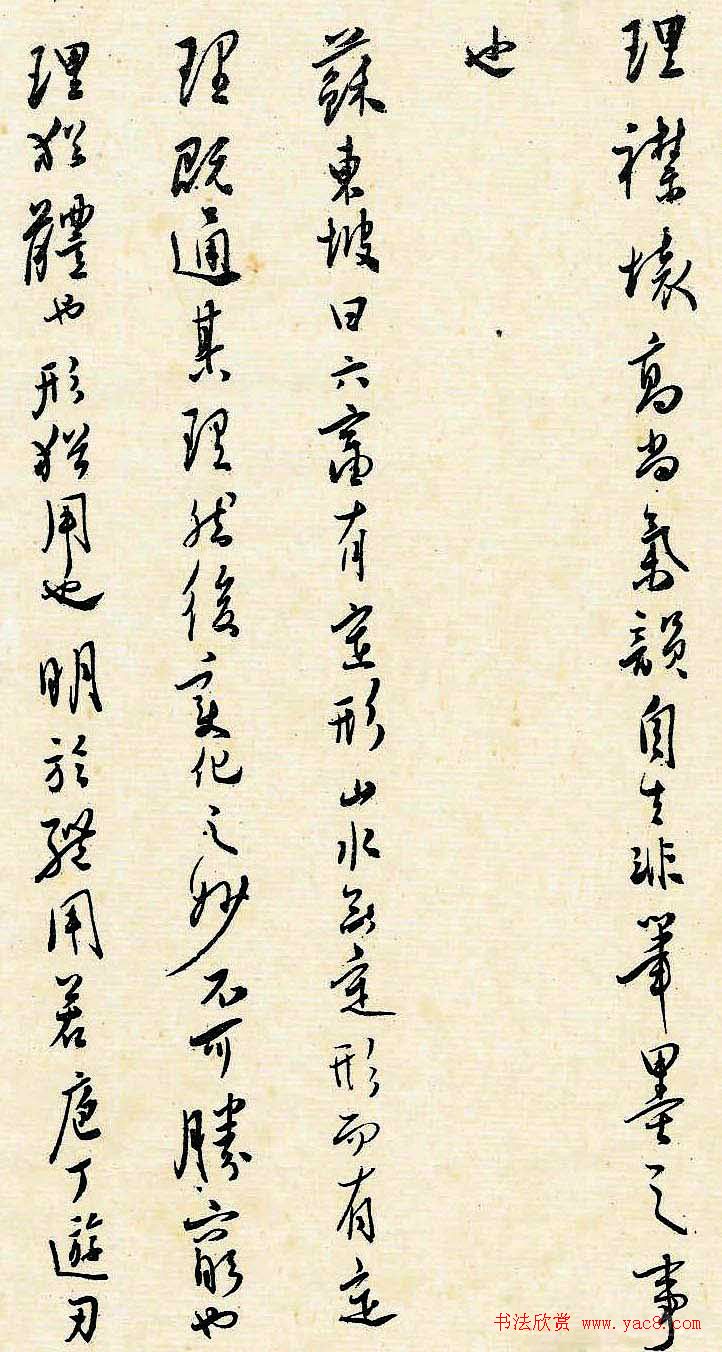 理襟懷高尚氣韻自生非筆墨之事
也
蘇東坡曰六畜有定形山水無定形而有定
理既通其理然後變化之妙不可勝窮也
理猶體也形猶用也明於體用若庖丁遊刃
书法欣赏 www.yac8.com